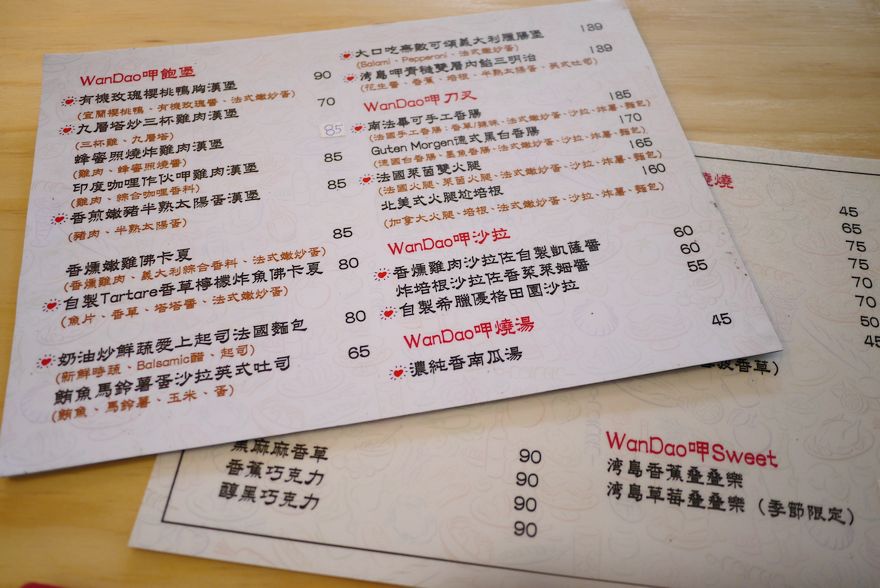 WanDao呷飽堡
有機玫瑰櫻桃鴨胸漢堡 90
(宜蘭櫻桃鴨、有機玫瑰醬、法式嫩炒蛋)
九層塔炒三杯雞肉漢堡 70
(三杯雞、九層塔)
85
蜂蜜照燒炸雞肉漢堡
(雞肉、蜂蜜照燒醬)
印度咖哩作伙呷雞肉漢堡 85
(雞肉、綜合咖哩香料)
香煎嫩豬半熟太陽蛋漢堡 85
(豬肉、半熟太陽蛋)
香燻嫩雞佛卡夏 85
(香燻雞肉、義大利綜合香料、法式嫩炒蛋)
自製Tartare香草檸檬炸魚佛卡夏 80
(魚片、香草、塔塔醬、法式嫩炒蛋)
奶油炒鮮蔬愛上起司法國麵包 80
(新鮮時蔬、Balsamic醋、起司)
鮪魚馬鈴薯蛋沙拉英式吐司 65
(鮪魚、馬鈴薯、玉米、蛋)
大口吃高歡可頌義大利臘腸堡 139
(Salami、Pepperoni、法式嫩炒蛋)
湾島呷齊雙層內餡三明治 139
(花生醬、香蕉、培根、半熟太陽蛋、英式吐司)
WanDao呷刀叉
南法畢可手工香腸 185
(法國手工香腸：香草/辣味、法式嫩炒蛋、沙拉、炸薯、麵包)
Guten Morgen德式黑白香腸 170
(德國白香腸、墨魚香腸、法式嫩炒蛋、沙拉、炸薯、麵包)
法國萊茵雙火腿 165
(法國火腿、萊茵火腿、法式嫩炒蛋、沙拉、炸薯、麵包)
北美式火腿尬培根 160
(加拿大火腿、培根、法式嫩炒蛋、沙拉、炸薯、麵包)
WanDao呷沙拉
香燻雞肉沙拉佐自製凱薩醬 60
炸培根沙拉佐香茱萊姆醬 60
自製希臘優格田園沙拉 55
WanDao呷燒湯
濃純香南瓜湯 45
燒
45
65
75
75
70
70
50
45
香草)
黑麻麻香草 90
香蕉巧克力 90
醇黑巧克力 90
90
WanDao呷Sweet
湾島香蕉叠叠樂
湾島草莓叠叠樂（季節限定）